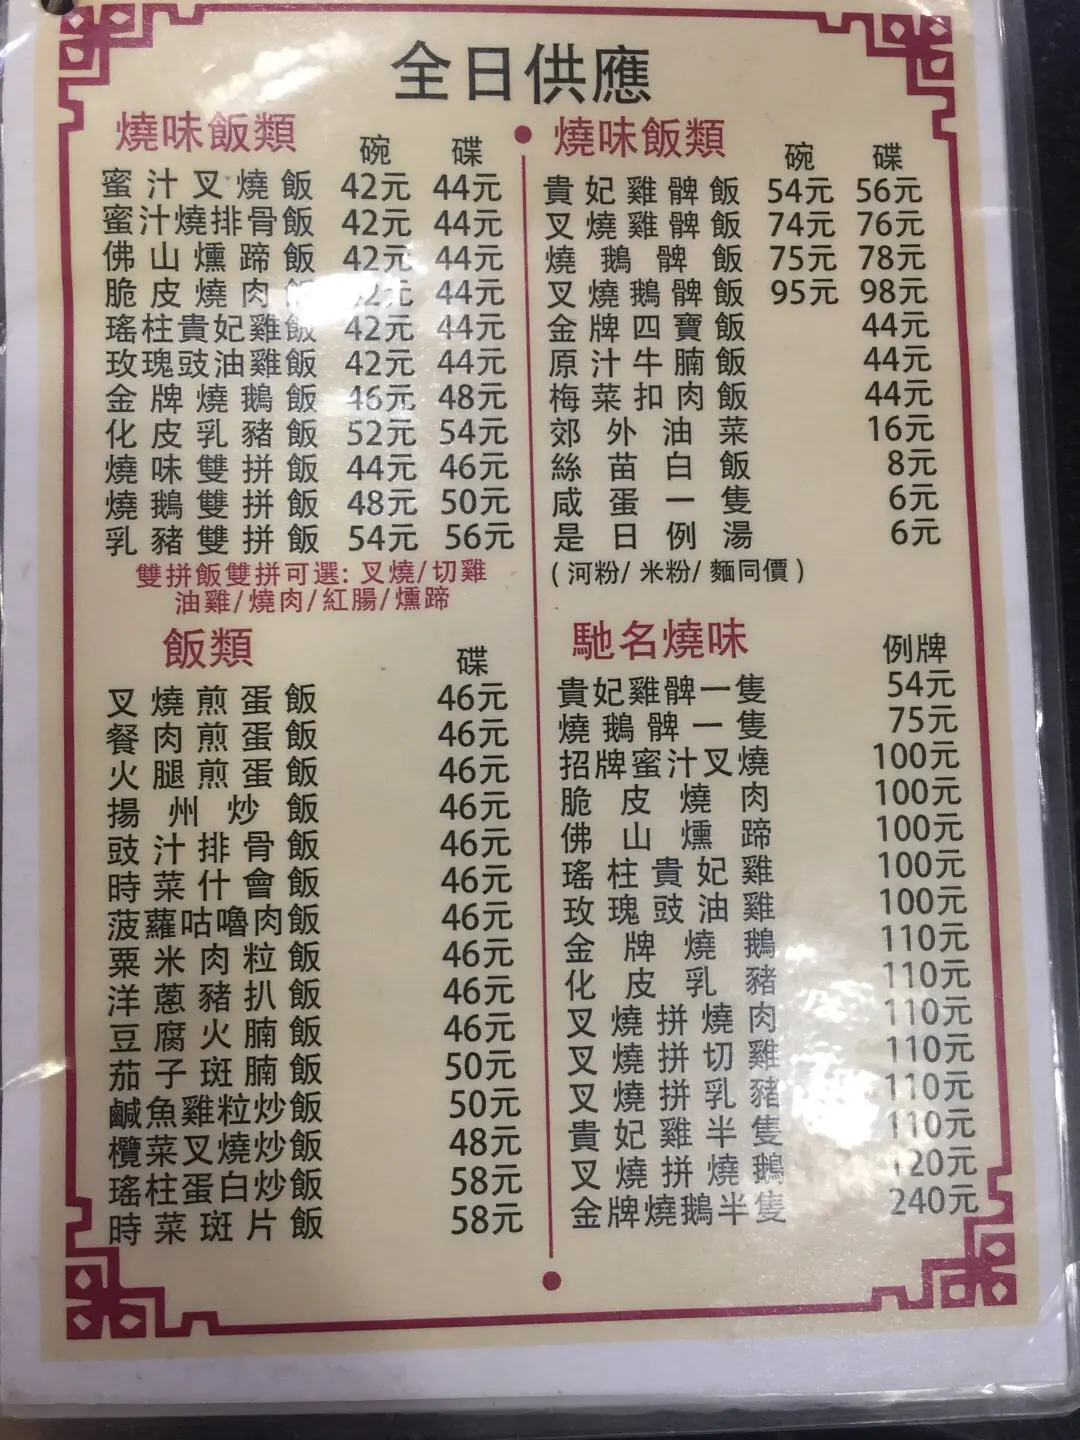 全日供應
燒味飯類 碗 碟
蜜汁叉燒飯 42元 44元
蜜汁燒排骨飯 42元 44元
佛山燻蹄飯 42元 44元
脆皮燒肉飯 2元 44元
瑤柱貴妃雞飯 42元 44元
玫瑰豉油雞飯 42元 44元
金牌燒鵝飯 46元 48元
化皮乳豬飯 52元 54元
燒味雙拼飯 44元 46元
燒鵝雙拼飯 48元 50元
乳豬雙拼飯 54元 56元
雙拼飯雙拼可選: 叉燒/切雞
油雞/燒肉/紅腸/燻蹄
飯類 碟
叉燒煎蛋飯 46元
餐肉煎蛋飯 46元
火腿煎蛋飯 46元
揚州炒飯 46元
豉汁排骨飯 46元
時菜什會飯 46元
菠蘿咕嚕肉飯 46元
粟米肉粒飯 46元
洋蔥豬扒飯 46元
豆腐火腩飯 46元
茄子斑腩飯 50元
鹹魚雞粒炒飯 50元
欖菜叉燒炒飯 48元
瑤柱蛋白炒飯 58元
時菜斑片飯 58元
燒味飯類 碗 碟
貴妃雞髀飯 54元 56元
叉燒雞髀飯 74元 76元
燒鵝髀飯 75元 78元
叉燒鵝髀飯 95元 98元
金牌四寶飯 44元
原汁牛腩飯 44元
梅菜扣肉飯 44元
郊外油菜 16元
絲苗白飯 8元
咸蛋一隻 6元
是日例湯 6元
(河粉/ 米粉/ 麵同價)
馳名燒味 例牌
貴妃雞髀一隻 54元
燒鵝髀一隻 75元
招牌蜜汁叉燒 100元
脆皮燒肉 100元
佛山燻蹄 100元
瑤柱貴妃雞 100元
玫瑰豉油雞 100元
金牌燒鵝 110元
化皮乳豬 110元
叉燒拼燒肉 110元
叉燒拼切雞 110元
叉燒拼乳豬 110元
貴妃雞半隻 110元
叉燒拼燒鵝 120元
金牌燒鵝半隻 240元